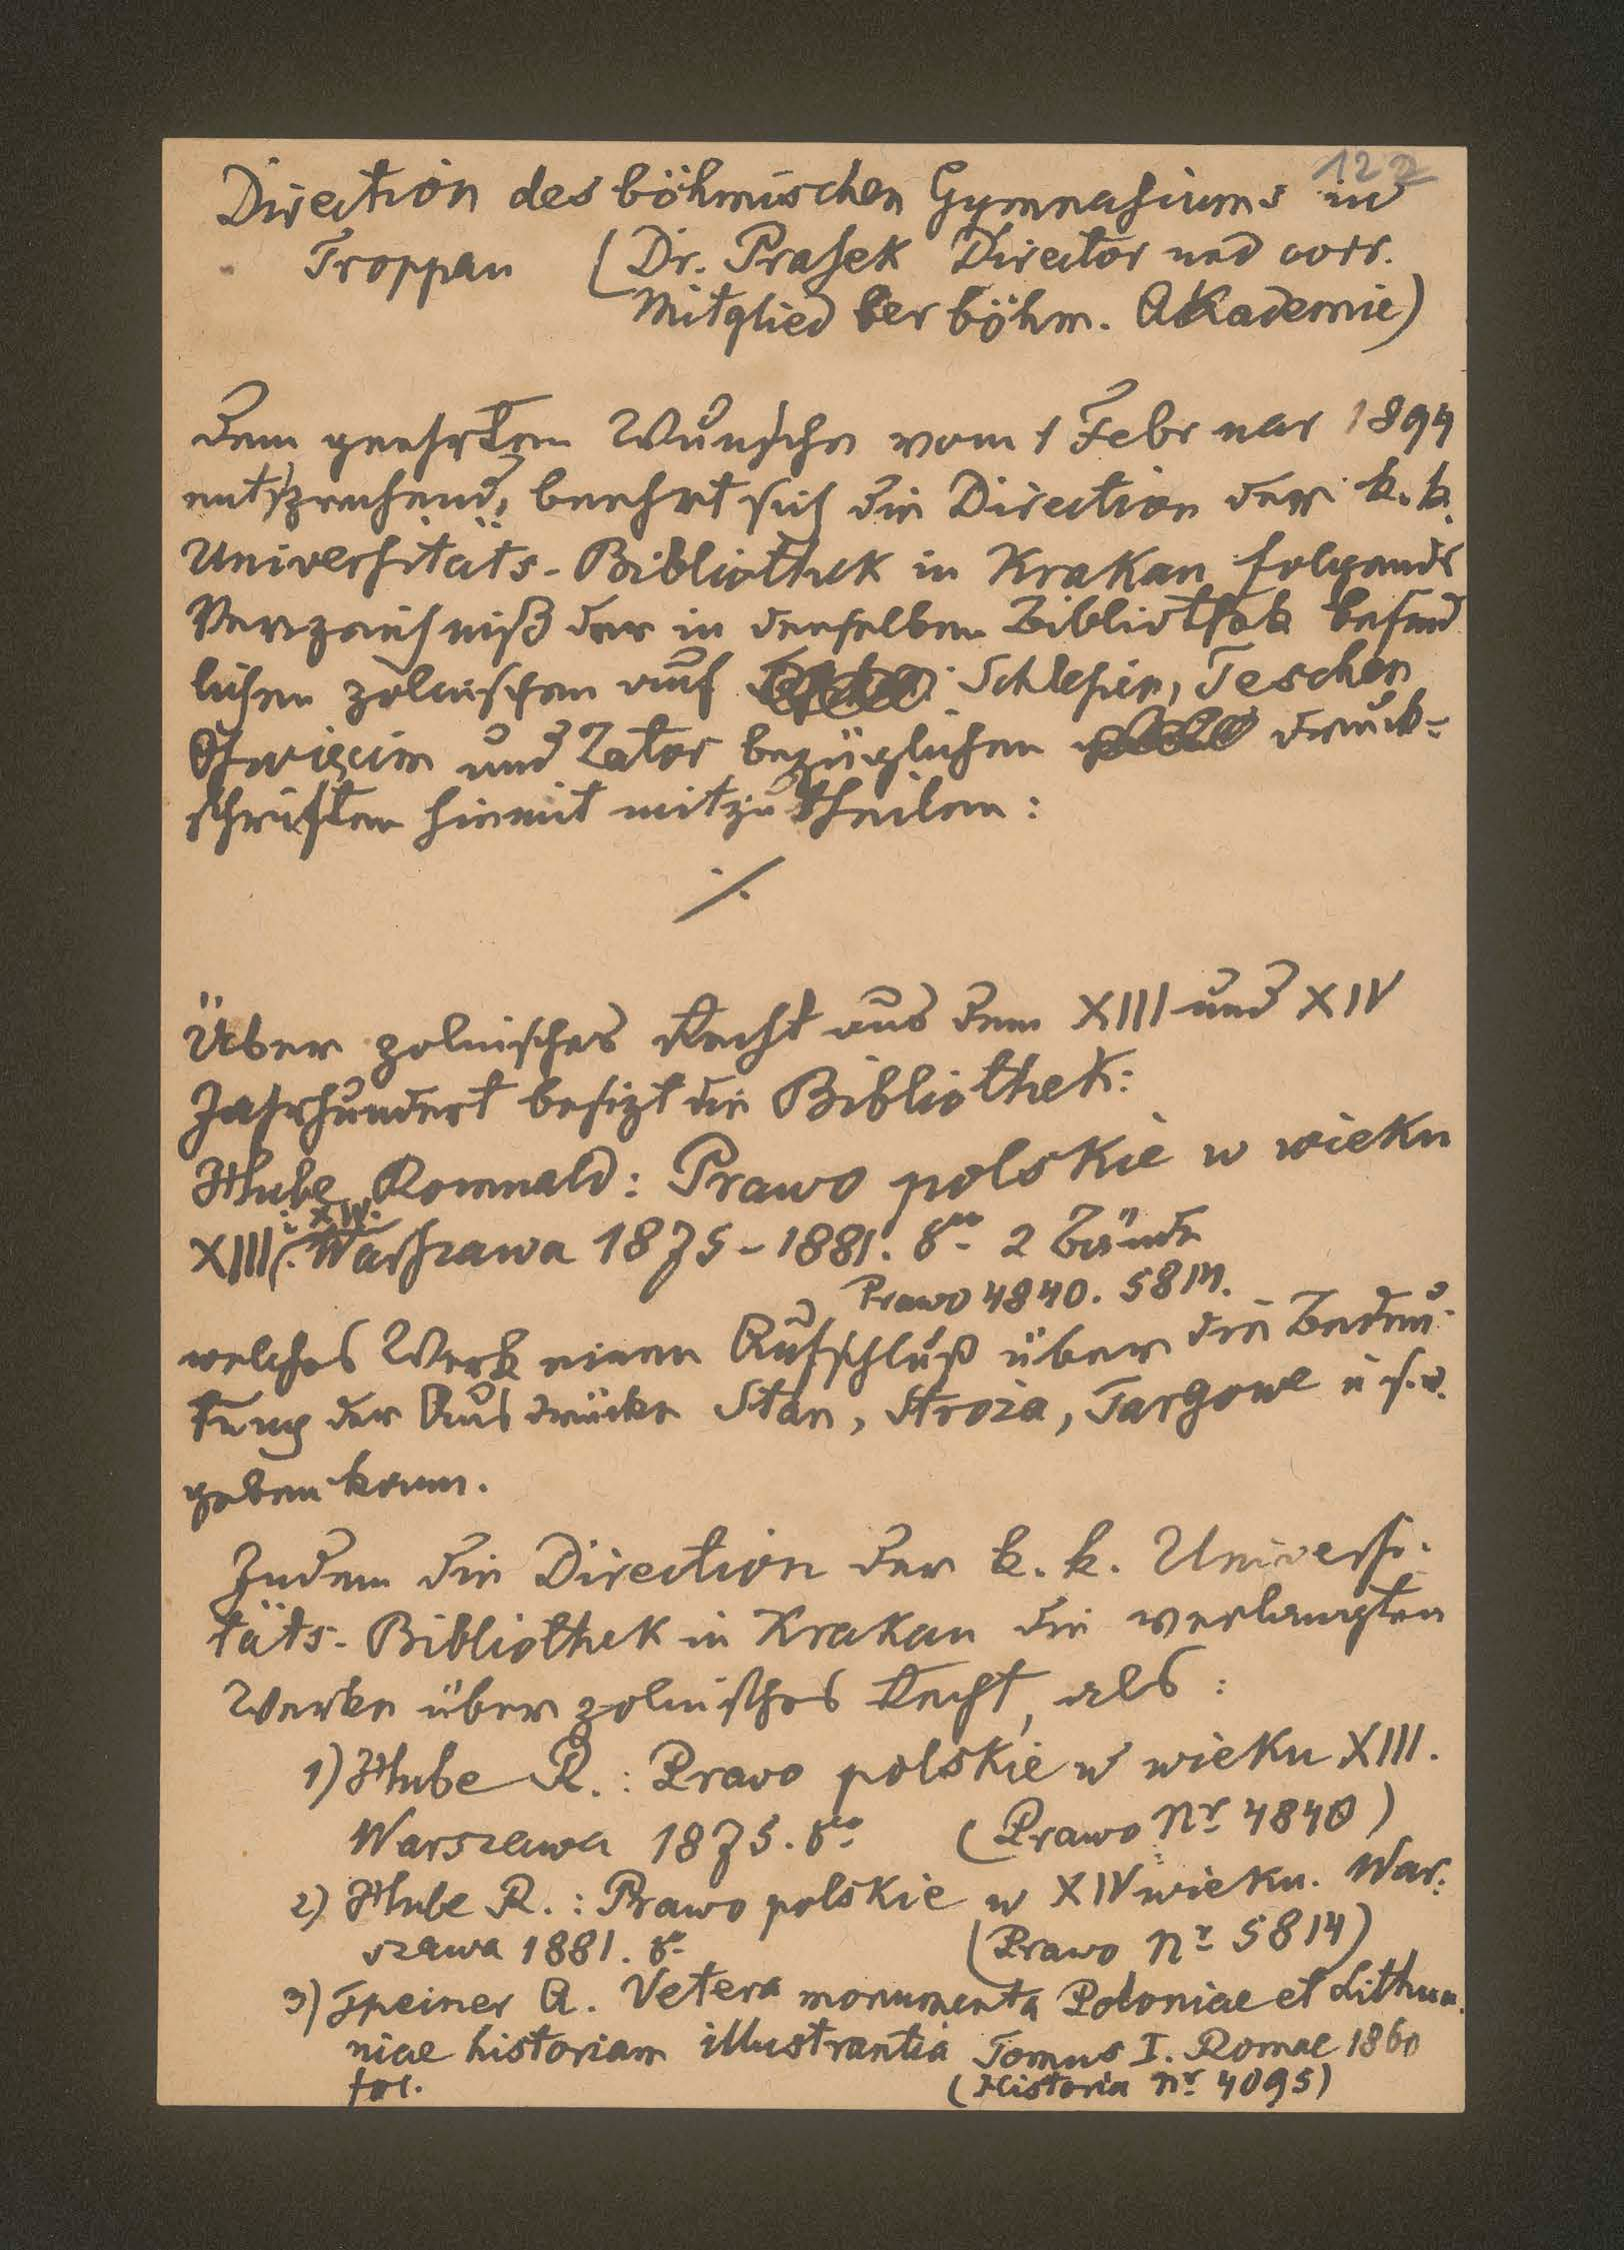 122
Direction des böhmischen Gymnasiums in
Troppau (Dr. Prasek Director und corr.
Mitglied der böhm. Akademie)
Dem geehrten Wunsche vom 1 Februar 1899
entsprechend, beehrt sich die Direction der k. k.
Universitäts-Bibliothek in Krakau folgende
Verzeichniß der in derselben Bibliothek befind
lichen polnischen auf Schlesien, Teschen
Oswięcim und Zator bezüglichen Druck-
schriften hiemit mitzutheilen:
./.
Über polnisches Recht aus dem XIII und XIV
Jahrhundert besizt die Bibliothek:
Hube Romuald: Prawo polskie w wieku
XIII i XIV. Warszawa 1875-1881. 8vo 2 Bände
Prawo 4840. 5814.
welches Werk einen Aufschluß über die Bedeu-
tung der Ausdrücke Stan, Stroża, Targowe u s. w.
geben kann.
Indem die Direction der k. k. Universi-
täts-Bibliothek in Krakau die verlangten
Werke über polnisches Recht, als:
1) Hube R.: Prawo polskie w wieku XIII.
Warszawa 1875. 8vo (Prawo Nr 4840)
2) Hube R.: Prawo polskie w XIV wieku. War-
szawa 1881. 8o (Prawo Nr 5814)
3) Theiner A. Vetera monumenta Poloniae et Lithua-
niae historiam illustrantia Tomus I. Romae 1860
fol. (Historia Nr 4095)